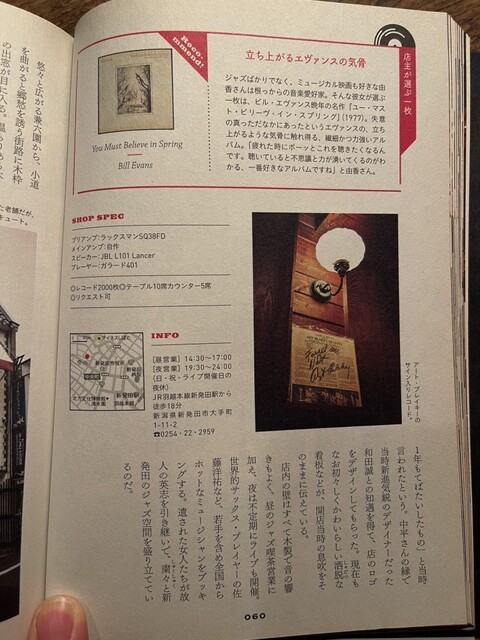 店主が選ぶ一枚
Reco-
mmend!
立ち上がるエヴァンスの気骨
ジャズばかりでなく、ミュージカル映画も好きな由
香さんは根っからの音楽愛好家。そんな彼女が選ぶ
一枚は、ビル・エヴァンス晩年の名作「ユー・マス
ト・ビリーヴ・イン・スプリング」(1977)。失意
の真っただなかにあったというエヴァンスの、立ち
上がるような気骨に触れ得る、繊細かつ力強いアル
バム。「疲れた時にボーッとこれを聴きたくなるん
です。聴いていると不思議と力が湧いてくるのがわ
かる、一番好きなアルバムですね」と由香さん。
You Must Believe in Spring
Bill Evans
悠々と広がる兼六園から、小道
を曲がると郷愁を誘う街路に木枠
の出窓が目に入る。
た老舗だが、
キュート。
SHOP SPEC
プリアンプ:ラックスマンSQ38FD
メインアンプ:自作
スピーカー:JBL L101 Lancer
プレーヤー:ガラード401
◎レコード2000枚◎テーブル10席カウンター5席
◎リクエスト可
INFO
[昼営業] 14:30〜17:00
[夜営業] 19:30〜24:00
(日・祝・ライブ開催日の
夜休)
JR羽越本線新発田駅から
徒歩18分
新潟県新発田市大手町
1-11-2
☎0254・22・2959
新発田駅
羽越本線
アート・ブレイキーの
サイン入りレコード。
1年もてばたいしたもの」と当時
言われたという。中平さんの縁で
当時新進気鋭のデザイナーだった
和田誠との知遇を得て、店のロゴ
をデザインしてもらった。現在も
なお初々しくかわいらしい洒脱な
看板などが、開店当時の息吹をそ
のままに伝えている。
店内の壁はすべて木製で音の響
きもよく、昼のジャズ喫茶営業に
加え、夜は不定期にライブも開催。
世界的サックス・プレイヤーの佐
藤洋祐など、若手を含め全国から
ホットなミュージシャンをブッキ
ングする。遺された女人たちが故
人の英志を引き継いで、粛々と新
発田のジャズ空間を盛り立ててい
るのだ。
060